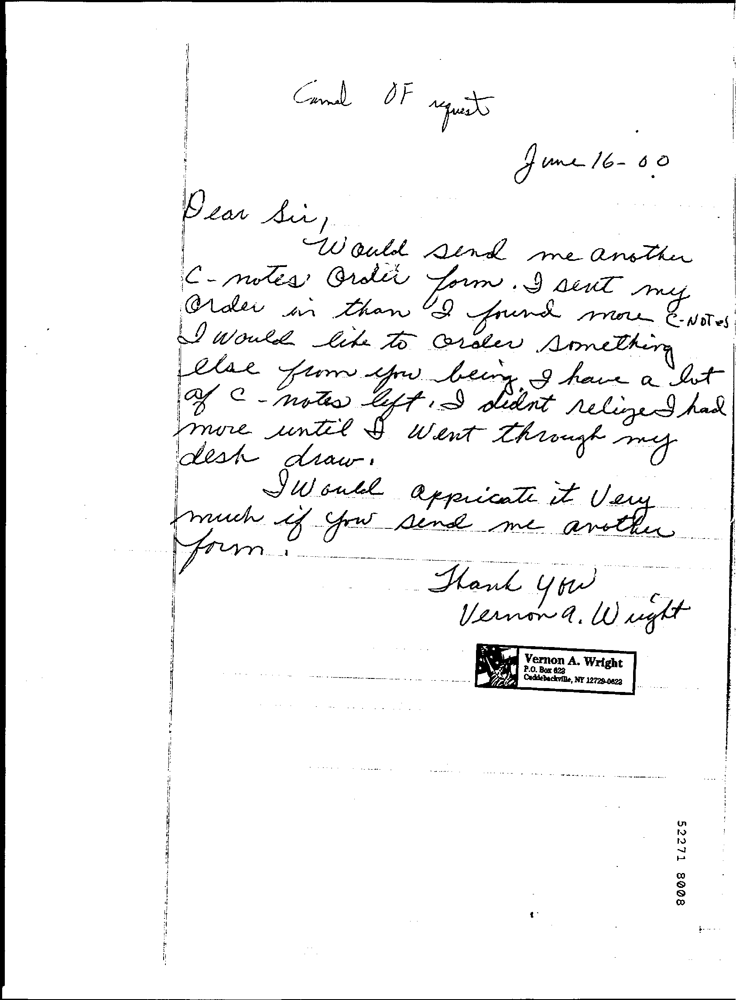 Camel OF request
June 16-00
Dear Sir,
Would send me another
C-notes Order form. I sent my
Order in than I found more C-NOTes
I would like to order something
else from you being I have a lot
of C-notes left. I didnt relize I had
more until I went through my
desk draw.
I Would appricate it Very
much if you send me another
form.
Thank You
Vernon A. Wright
Vernon A. Wright
P.O. Box 622
Cuddebackville, NY 12729-0622
52271 8008